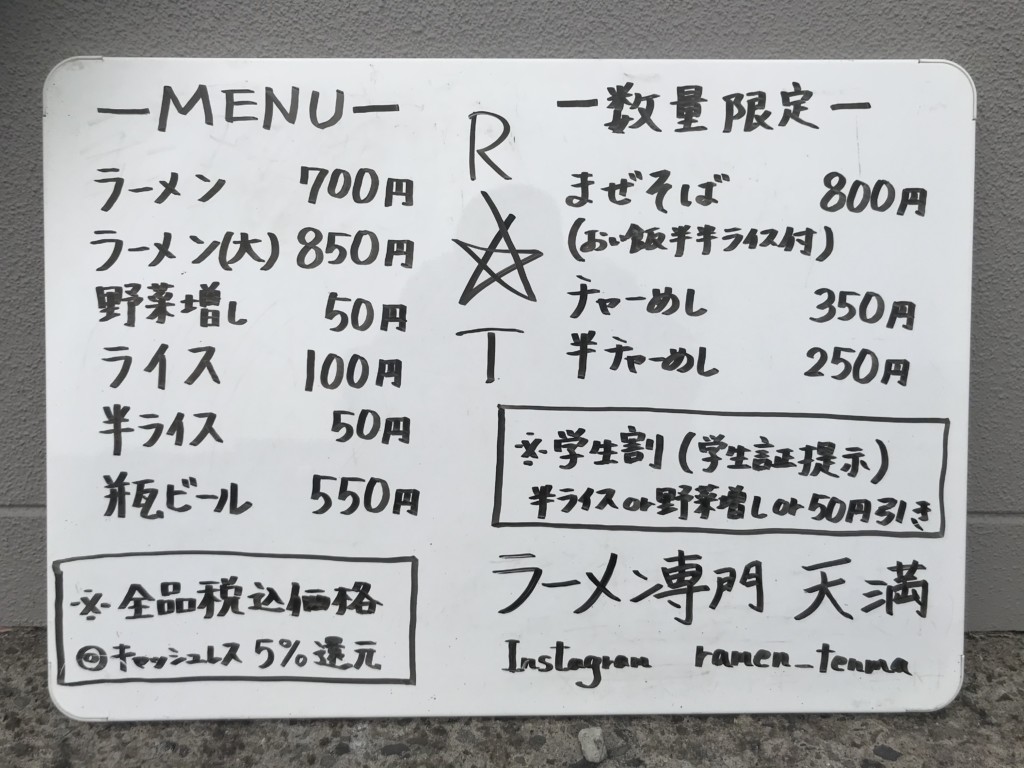 ーMENUー
ラーメン 700円
ラーメン(大) 850円
野菜増し 50円
ライス 100円
半ライス 50円
瓶ビール 550円
※全品税込価格
◎キャッシュレス 5%還元
R
☆
T
ー数量限定ー
まぜそば 800円
(おい飯半半ライス付)
チャーめし 350円
半チャーめし 250円
※学生割(学生証提示)
半ライスor野菜増しor50円引き
ラーメン専門 天満
Instagram ramen_tenma